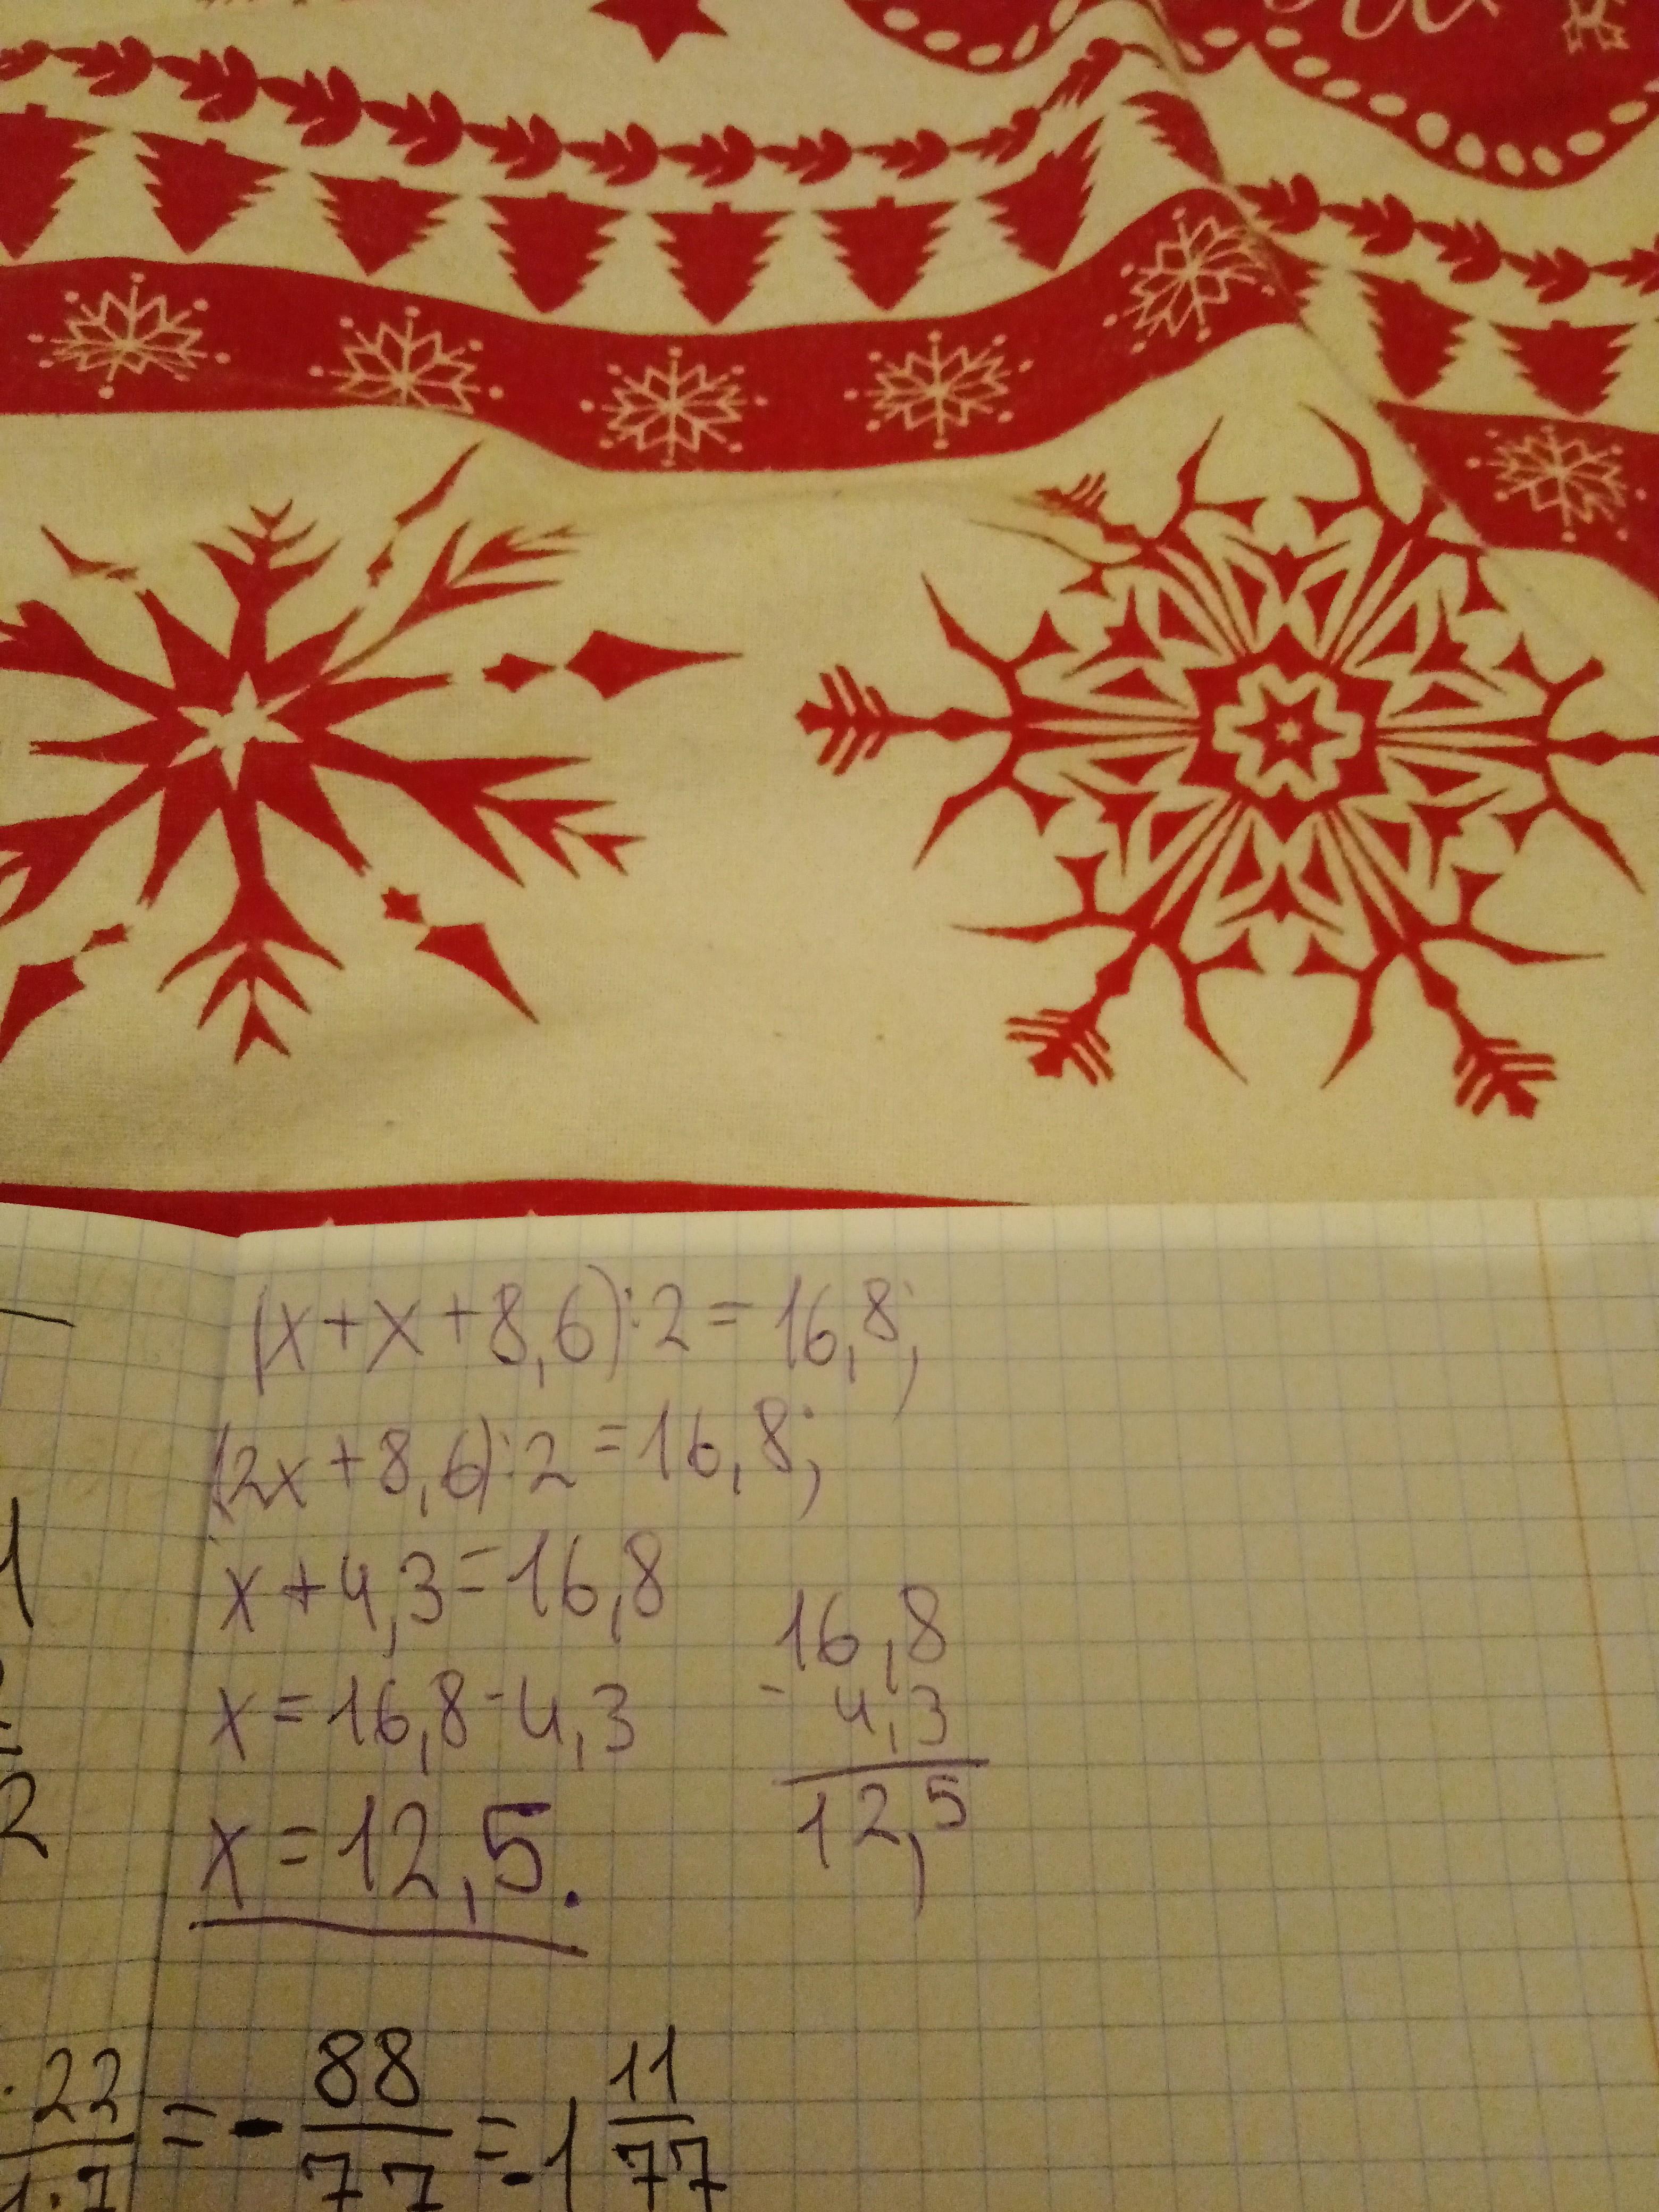 (x+x+8,6):2=16,8;
(2x+8,6):2=16,8;
x+4,3=16,8
x=16,8-4,3
x=12,5.
16,8
- 4,3
12,5
1
2
· 22 = - 88/77 = -1 11/77